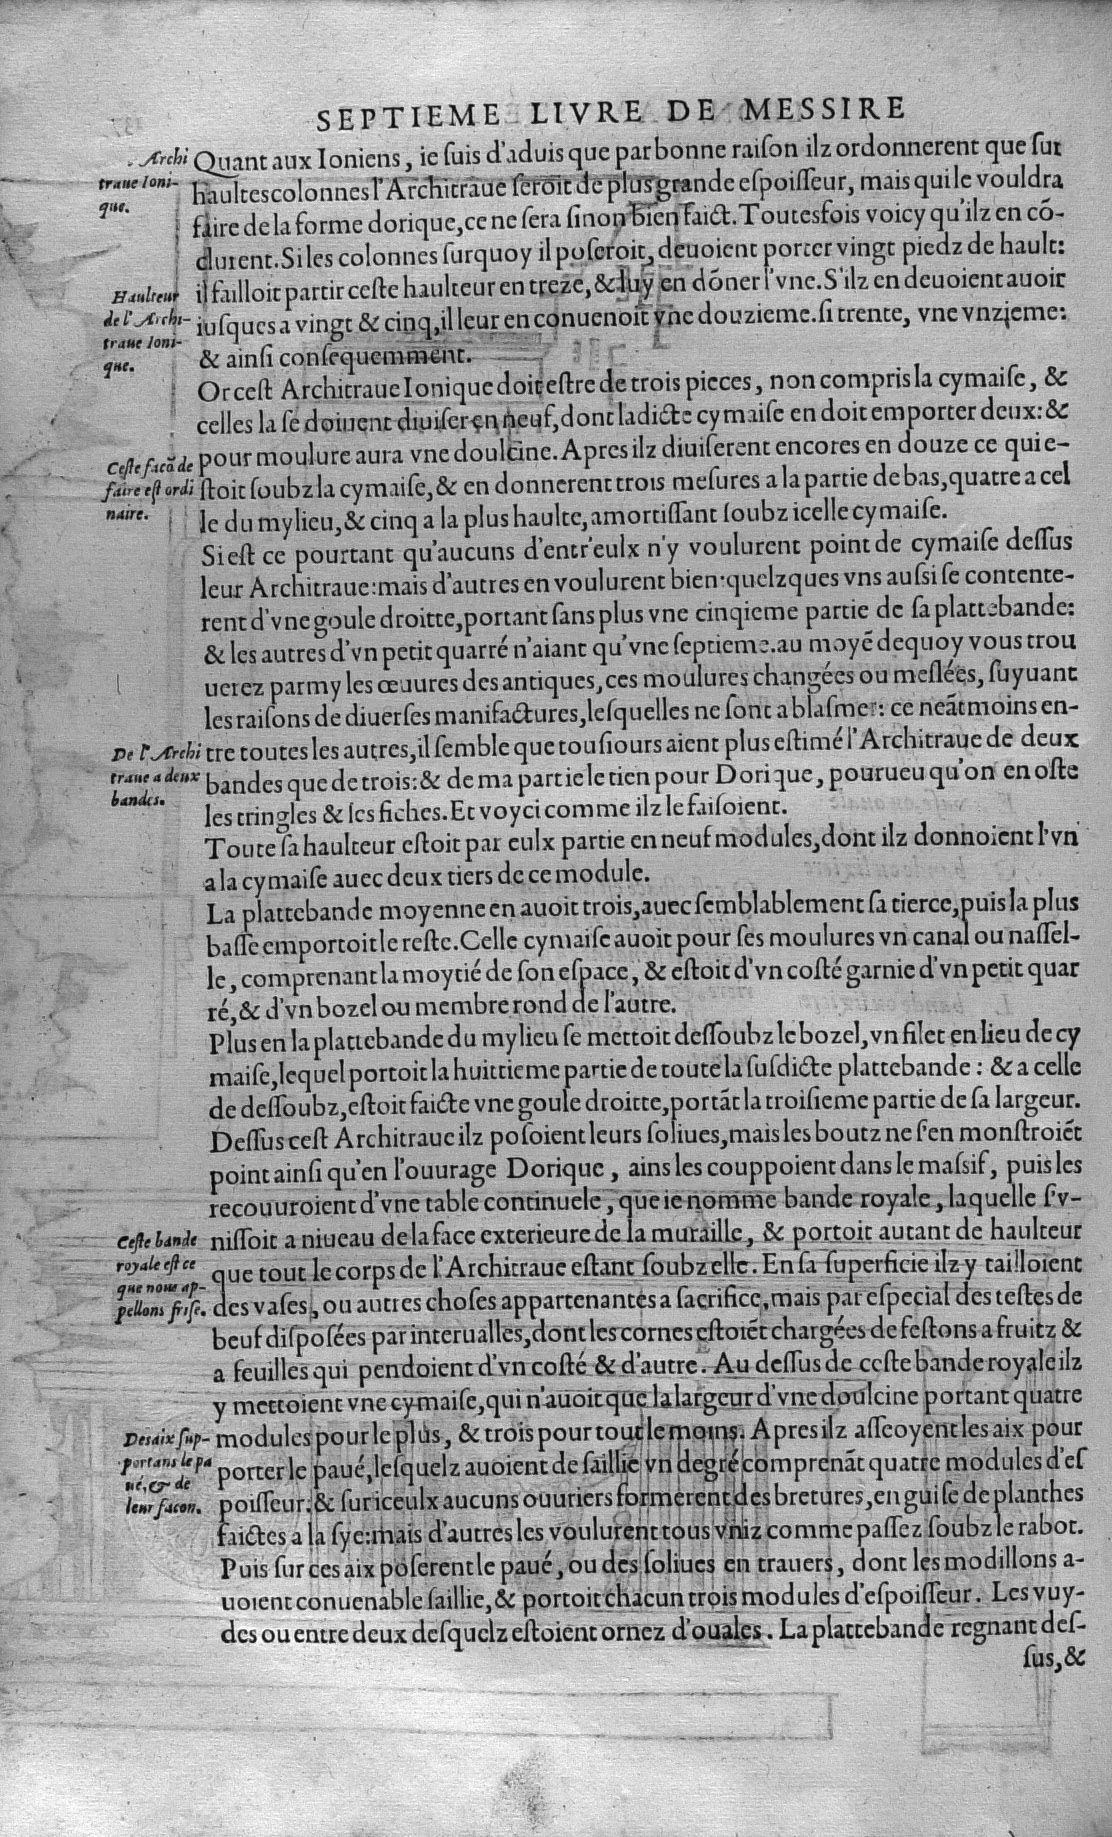 SEPTIEME LIVRE DE MESSIRE
Archi
traue Ioni-
que.
Quant aux Ioniens, ie suis d'aduis que par bonne raison ilz ordonnerent que sur
haultes colonnes l'Architraue seroit de plus grande espoisseur, mais qui le vouldra
faire de la forme dorique, ce ne sera sinon bien faict. Toutesfois voicy qu'ilz en cõ-
clurent. Si les colonnes surquoy il poseroit, deuoient porter vingt piedz de hault:
Haulteur
de l'Archi-
traue Ioni-
que.
il failloit partir ceste haulteur en treze, & luy en dõner l'vne. S'ilz en deuoient auoir
iusques a vingt & cinq, il leur en conuenoit vne douzieme. si trente, vne vnzieme:
& ainsi consequemment.
Or cest Architraue Ionique doit estre de trois pieces, non compris la cymaise, &
celles la se doiuent diuiser en neuf, dont ladicte cymaise en doit emporter deux: &
Ceste facõ de
faire est ordi
naire.
pour moulure aura vne doulcine. Apres ilz diuiserent encores en douze ce qui e-
stoit soubz la cymaise, & en donnerent trois mesures a la partie de bas, quatre a cel
le du mylieu, & cinq a la plus haulte, amortissant soubz icelle cymaise.
Si est ce pourtant qu'aucuns d'entr'eulx n'y voulurent point de cymaise dessus
leur Architraue: mais d'autres en voulurent bien: quelzques vns aussi se contente-
rent d'vne goule droitte, portant sans plus vne cinqieme partie de sa plattebande:
& les autres d'vn petit quarré n'aiant qu'vne septieme. au moyẽ dequoy vous trou
uerez parmy les œuures des antiques, ces moulures changées ou meslées, suyuant
les raisons de diuerses manifactures, lesquelles ne sont a blasmer: ce neãtmoins en-
De l'Archi
traue a deux
bandes.
tre toutes les autres, il semble que tousiours aient plus estimé l'Architraue de deux
bandes que de trois: & de ma partie le tien pour Dorique, pourueu qu'on en oste
les tringles & les fiches. Et voyci comme ilz le faisoient.
Toute sa haulteur estoit par eulx partie en neuf modules, dont ilz donnoient l'vn
a la cymaise auec deux tiers de ce module.
La plattebande moyenne en auoit trois, auec semblablement sa tierce, puis la plus
basse emportoit le reste. Celle cymaise auoit pour ses moulures vn canal ou nassel-
le, comprenant la moytié de son espace, & estoit d'vn costé garnie d'vn petit quar
ré, & d'vn bozel ou membre rond de l'autre.
Plus en la plattebande du mylieu se mettoit dessoubz le bozel, vn filet en lieu de cy
maise, lequel portoit la huittieme partie de toute la susdicte plattebande: & a celle
de dessoubz, estoit faicte vne goule droitte, portãt la troisieme partie de sa largeur.
Dessus cest Architraue ilz posoient leurs soliues, mais les boutz ne s'en monstroiẽt
point ainsi qu'en l'ouurage Dorique, ains les couppoient dans le massif, puis les
recouuroient d'vne table continuele, que ie nomme bande royale, laquelle s'v-
Ceste bande
royale est ce
que nous ap-
pellons frise.
nissoit a niueau de la face exterieure de la muraille, & portoit autant de haulteur
que tout le corps de l'Architraue estant soubz elle. En sa superficie ilz y tailloient
des vases, ou autres choses appartenantes a sacrifice, mais par especial des testes de
beuf disposées par interualles, dont les cornes estoiẽt chargées de festons a fruitz &
a feuilles qui pendoient d'vn costé & d'autre. Au dessus de ceste bande royale ilz
y mettoient vne cymaise, qui n'auoit que la largeur d'vne doulcine portant quatre
Des aix sup-
portans le pa
ué, & de
leur facon.
modules pour le plus, & trois pour tout le moins. Apres ilz asseoyent les aix pour
porter le paué, lesquelz auoient de saillie vn degré comprenãt quatre modules d'es
poisseur: & sur iceulx aucuns ouuriers formerent des bretures, en guise de planches
faictes a la sye: mais d'autres les voulurent tous vniz comme passez soubz le rabot.
Puis sur ces aix poserent le paué, ou des soliues en trauers, dont les modillons a-
uoient conuenable saillie, & portoit chacun trois modules d'espoisseur. Les vuy-
des ou entre deux desquelz estoient ornez d'ouales. La plattebande regnant des-
sus, &